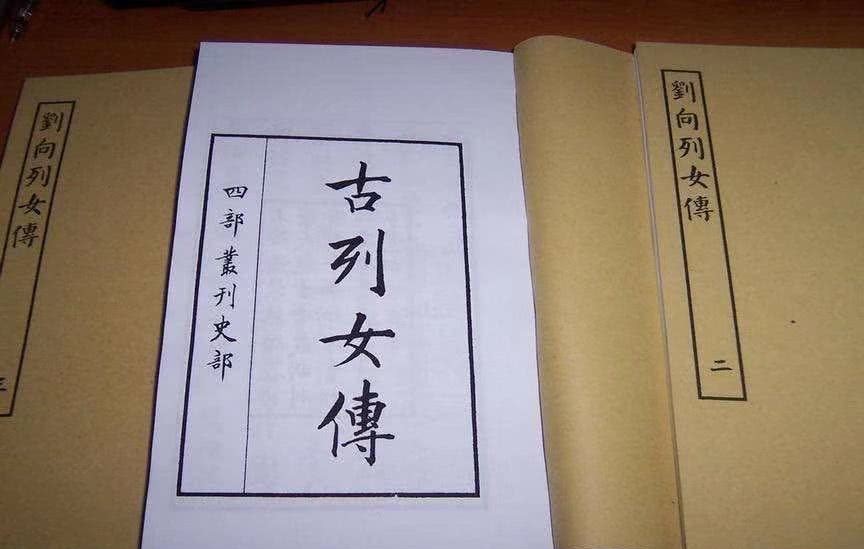 劉向列女傳
二
古列女傳
四部叢刊史部
劉向列女傳
三